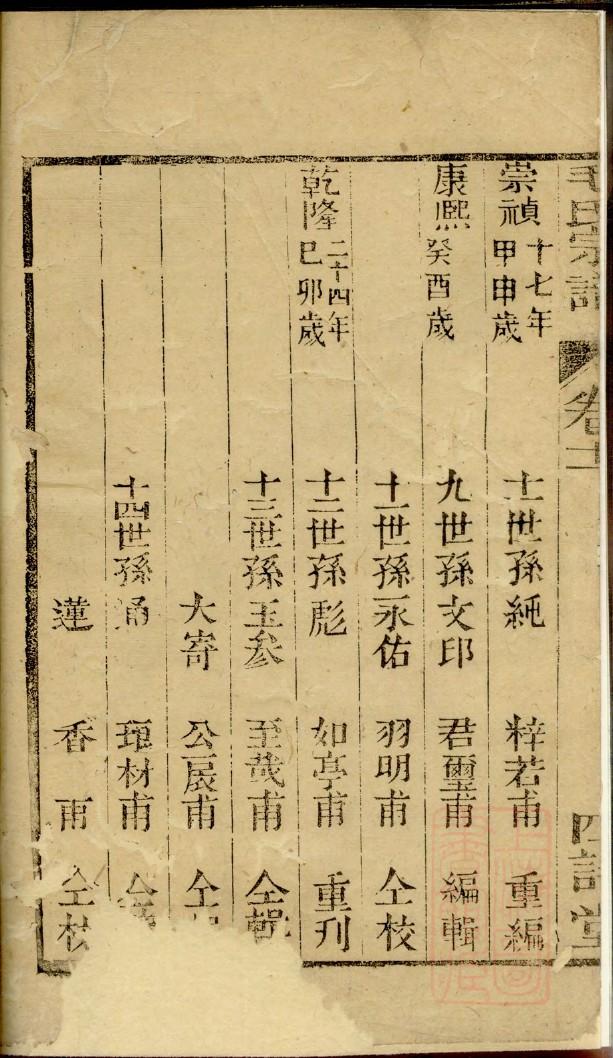 毛氏宗譜 卷十 四訓堂
崇禎十七年甲申歲 十一世孫純 粹若甫 重編
康熙癸酉歲 九世孫文印 君璽甫 編輯
十一世孫永佑 羽明甫 仝校
乾隆二十四年巳卯歲 十二世孫彪 如亭甫 重刊
十三世孫玉参 至哉甫 仝輯
大寄 公辰甫 仝
十四世孫 材甫 仝
蓮 香甫 仝校